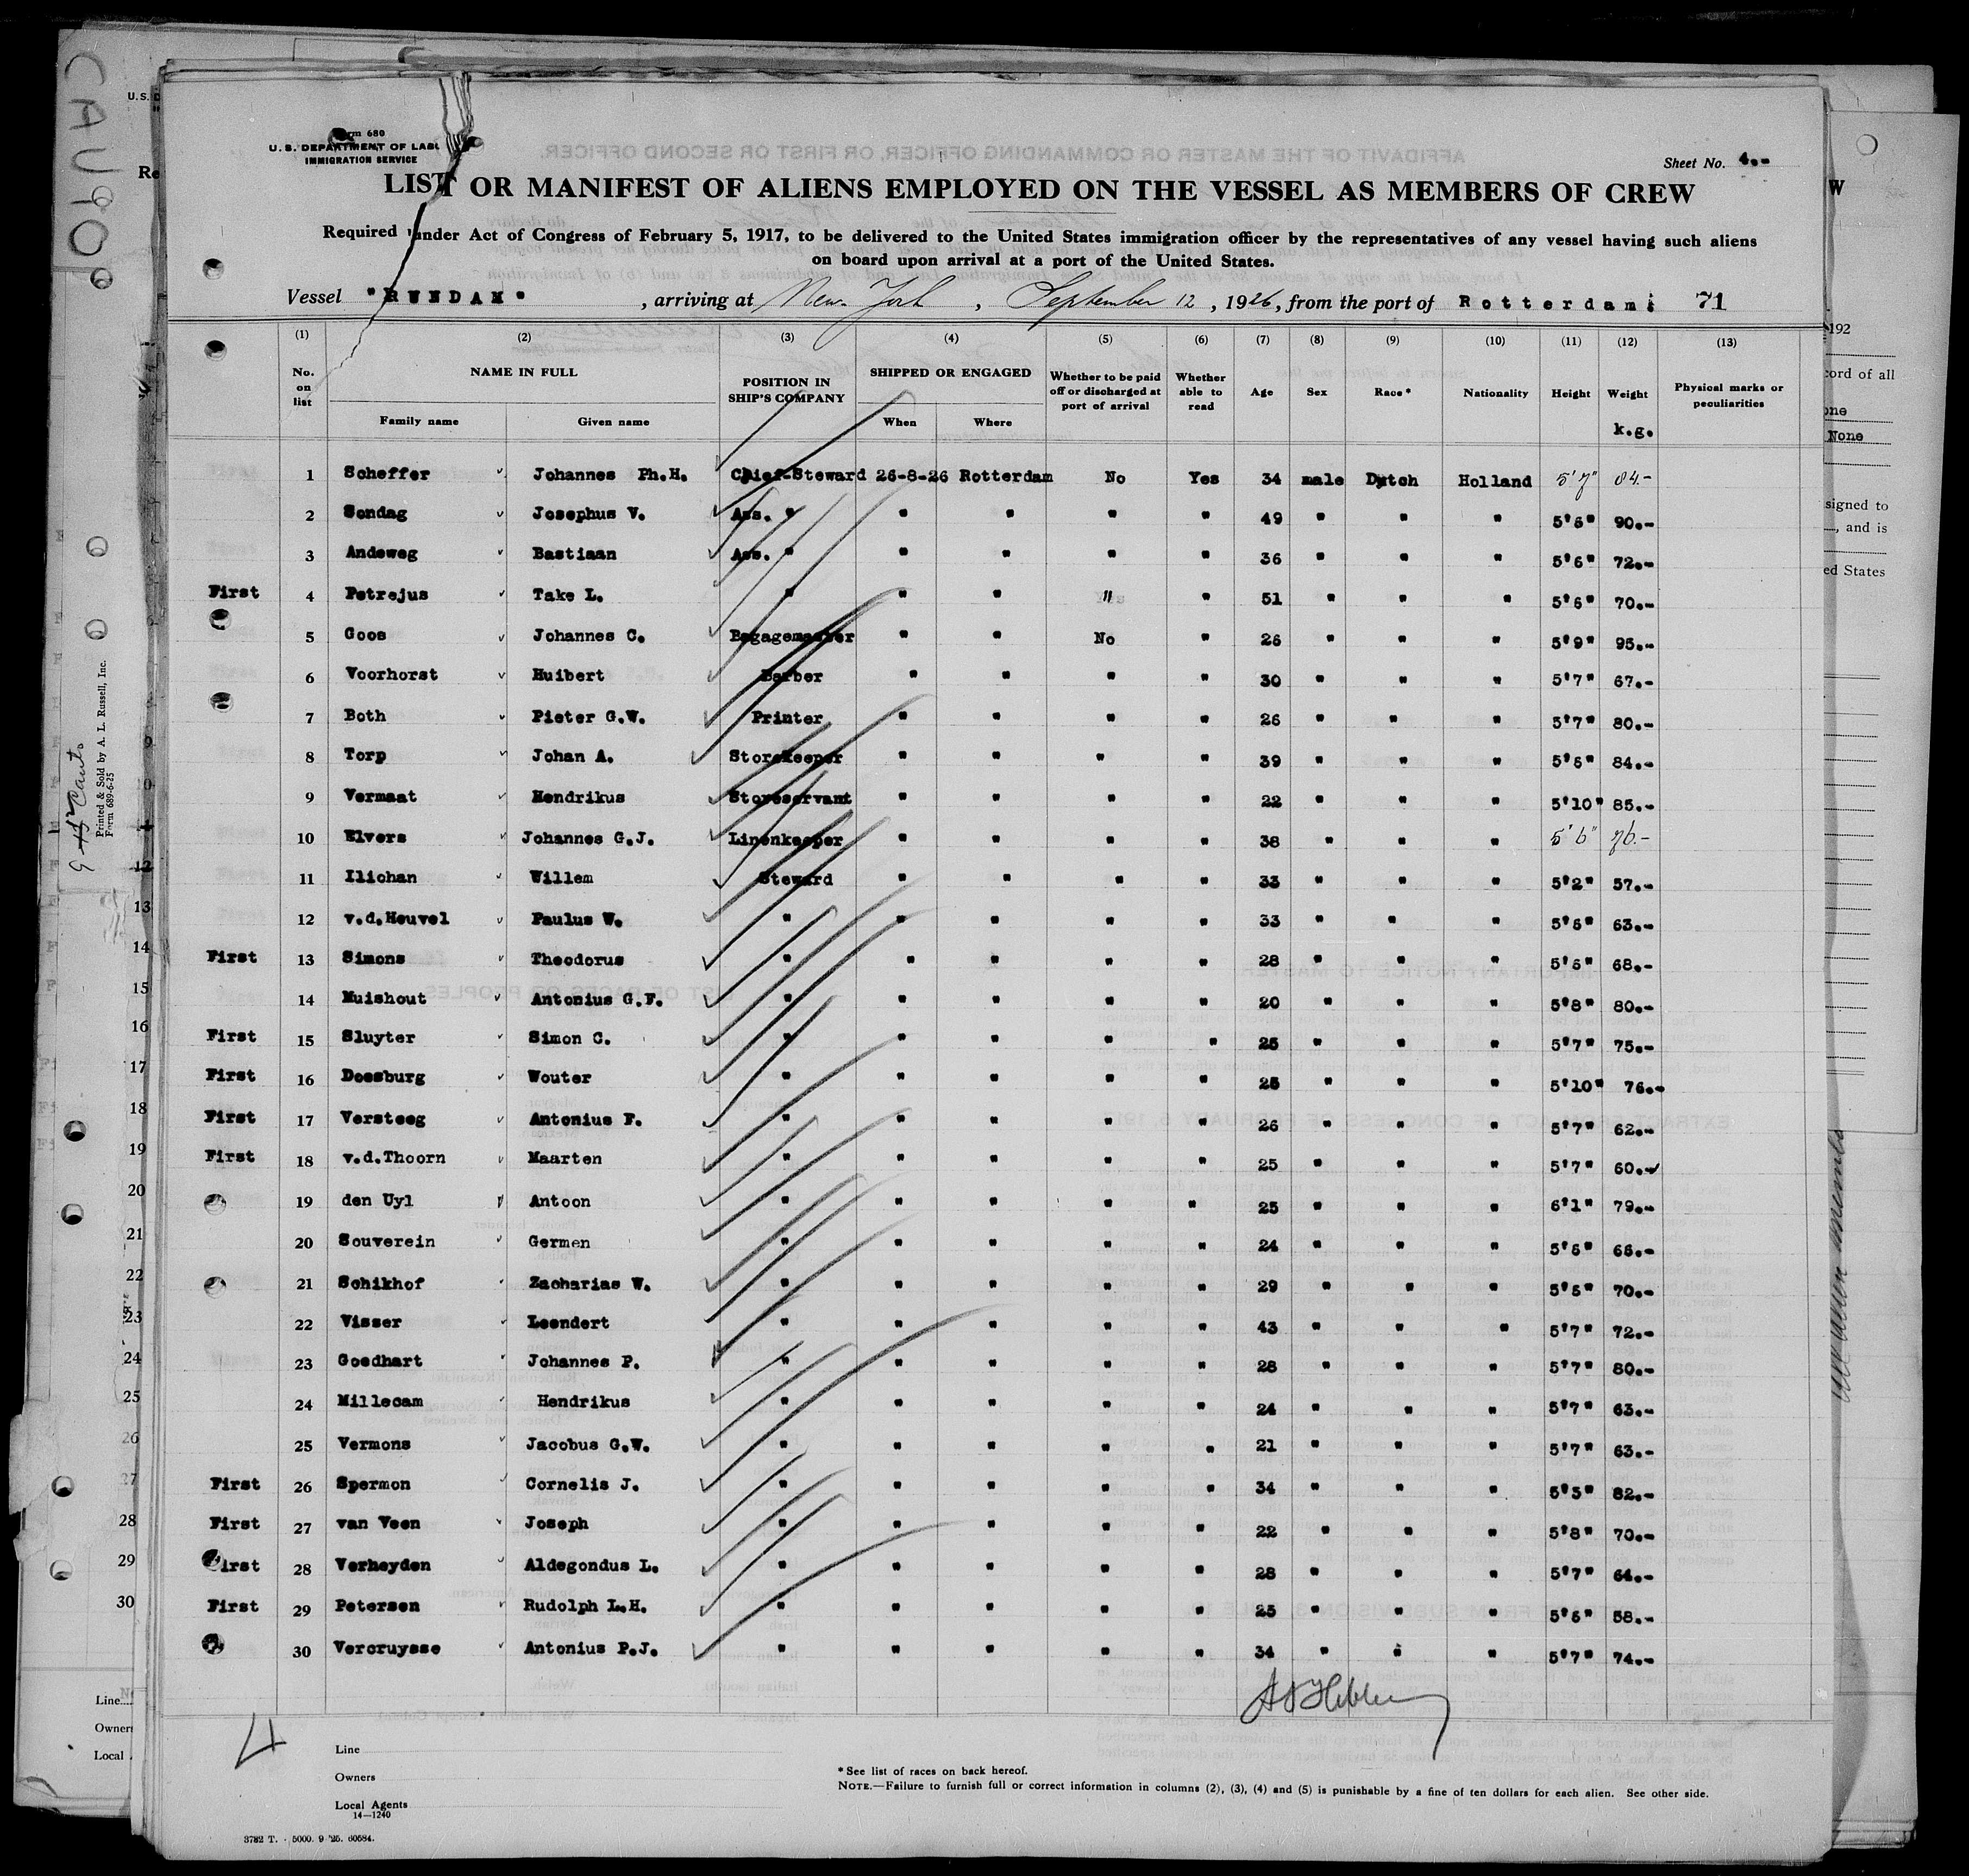 CAU90
Form 680
U. S. DEPARTMENT OF LABO
IMMIGRATION SERVICE
Sheet No. 4.-
LIST OR MANIFEST OF ALIENS EMPLOYED ON THE VESSEL AS MEMBERS OF CREW
Required under Act of Congress of February 5, 1917, to be delivered to the United States immigration officer by the representatives of any vessel having such aliens
on board upon arrival at a port of the United States.
Vessel "RYNDAM" , arriving at New York , September 12 , 1926, from the port of Rotterdam; 71
(1) (2) (3) (4) (5) (6) (7) (8) (9) (10) (11) (12) (13)
No. on list NAME IN FULL Family name Given name POSITION IN SHIP'S COMPANY SHIPPED OR ENGAGED When Where Whether to be paid off or discharged at port of arrival Whether able to read Age Sex Race* Nationality Height Weight k.g. Physical marks or peculiarities
1 Scheffer Johannes Ph.H. Chief-Steward 26-8-26 Rotterdam No Yes 34 male Dutch Holland 5'7" 84.-
2 Sondag Josephus V. Ass. " " " " " 49 " " " 5'6" 90.-
3 Andeweg Bastiaan Ass. " " " " " 36 " " " 5'6" 72.-
First 4 Petrejus Take L. " " " " " 51 " " " 5'6" 70.-
5 Goos Johannes C. Bagagemaster " " No " 26 " " " 5'9" 95.-
6 Voorhorst Huibert Barber " " " " 30 " " " 5'7" 67.-
7 Both Pieter G.W. Printer " " " " 26 " " " 5'7" 80.-
8 Torp Johan A. Storekeeper " " " " 39 " " " 5'6" 84.-
9 Vermaat Hendrikus Storeservant " " " " 22 " " " 5'10" 85.-
10 Elvers Johannes G.J. Linenkeeper " " " " 38 " " " 5'6" 76.-
11 Iliohan Willem Steward " " " " 33 " " " 5'2" 57.-
12 v.d.Heuvel Paulus W. " " " " " 33 " " " 5'6" 63.-
First 13 Simons Theodorus " " " " " 28 " " " 5'6" 68.-
14 Muishout Antonius G.F. " " " " " 20 " " " 5'8" 80.-
First 15 Sluyter Simon C. " " " " " 25 " " " 5'7" 75.-
First 16 Doesburg Wouter " " " " " 25 " " " 5'10" 76.-
First 17 Versteeg Antonius F. " " " " " 26 " " " 5'7" 62.-
First 18 v.d.Thoorn Maarten " " " " " 25 " " " 5'7" 60.-
19 den Uyl Antoon " " " " " 25 " " " 6'1" 79.-
20 Souverein Germen " " " " " 24 " " " 5'6" 66.-
21 Schikhof Zacharias W. " " " " " 29 " " " 5'6" 70.-
22 Visser Leendert " " " " " 43 " " " 5'7" 72.-
23 Goedhart Johannes P. " " " " " 28 " " " 5'7" 80.-
24 Millecam Hendrikus " " " " " 24 " " " 5'7" 63.-
25 Vermons Jacobus G.W. " " " " " 21 " " " 5'7" 63.-
First 26 Spermon Cornelis J. " " " " " 34 " " " 5'5" 82.-
First 27 van Veen Joseph " " " " " 22 " " " 5'8" 70.-
First 28 Verheyden Aldegondus L. " " " " " 28 " " " 5'7" 64.-
First 29 Petersen Rudolph L.H. " " " " " 25 " " " 5'6" 58.-
30 Vercruysse Antonius P.J. " " " " " 34 " " " 5'7" 74.-
4
Line
Owners
Local Agents
14—1240
* See list of races on back hereof.
NOTE.—Failure to furnish full or correct information in columns (2), (3), (4) and (5) is punishable by a fine of ten dollars for each alien. See other side.
3782 T. - 5000. 9-'25. 60584.
Printed & Sold by A. L. Russell, Inc.
Form 689-6-25
Line
Owner
Local
192
cord of all
one
None
signed to
, and is
ed States